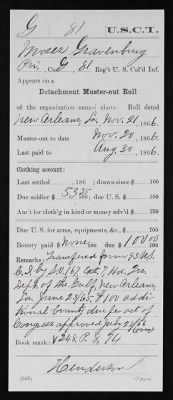 G 81 U.S.C.T.
Moses Gravenburg
Pvt., Co. G, 81 Reg't U. S. Col'd Inf.
Appears on a
Detachment Muster-out Roll
of the organization named above. Roll dated
New Orleans, La, Nov. 21, 1866.
Muster-out to date Nov. 20, 1866.
Last paid to Aug. 30, 1866.
Clothing account:
Last settled , 186 ; drawn since $ 100
Due soldier $ 53 35/100; due U. S. $ 100
Am't for cloth'g in kind or money adv'd $ 100
Due U. S. for arms, equipments, &c., $ 100
Bounty paid $ None 100; due $ 100 00/100
Remarks: Transferred from 93 U.S.
C.I. by S.O. 167, Hd. Qrs.
Dept. of the Gulf, New Orleans,
La. June 23/65. $100 addi
tional bounty due per act of
Congress approved July 28/66
Book mark: V 248, P. S., 74
Henderson
Copyist.